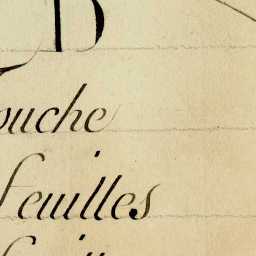 D
ouche
feuilles